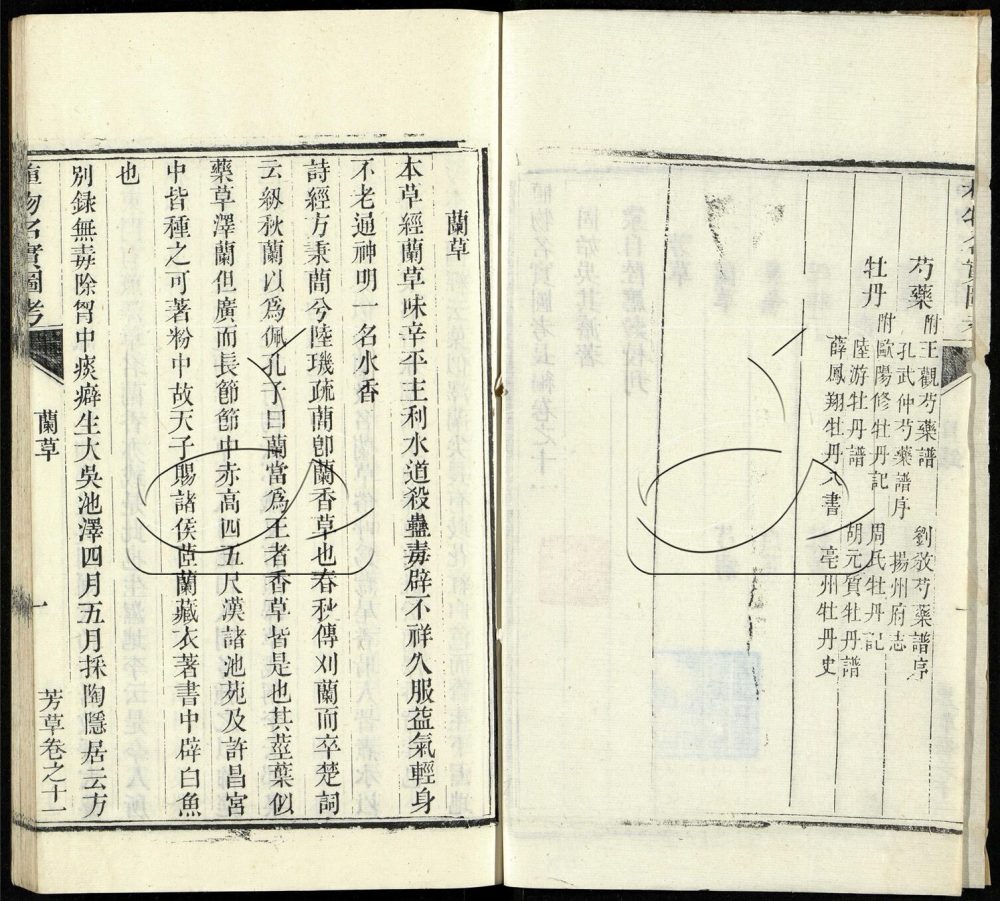 芍藥
附王觀芍藥譜
劉攽芍藥譜序
孔武仲芍藥譜序
揚州府志
牡丹
附歐陽修牡丹記
周氏牡丹記
陸游牡丹譜
胡元質牡丹譜
薛鳳翔牡丹八書
亳州牡丹史
蘭草
本草經蘭草味辛平主利水道殺蠱毒辟不祥久服益氣輕身
不老通神明一名水香
詩經方秉蕑兮陸璣疏蕑卽蘭香草也春秋傳刈蘭而卒楚詞
云紉秋蘭以爲佩孔子曰蘭當爲王者香草皆是也其莖葉似
藥草澤蘭但廣而長節節中赤高四五尺漢諸池苑及許昌宮
中皆種之可著粉中故天子賜諸侯茝蘭藏衣著書中辟白魚
也
別錄無毒除胷中痰癖生大吳池澤四月五月採陶隱居云方
植物名實圖考
蘭草
一
芳草卷之十一